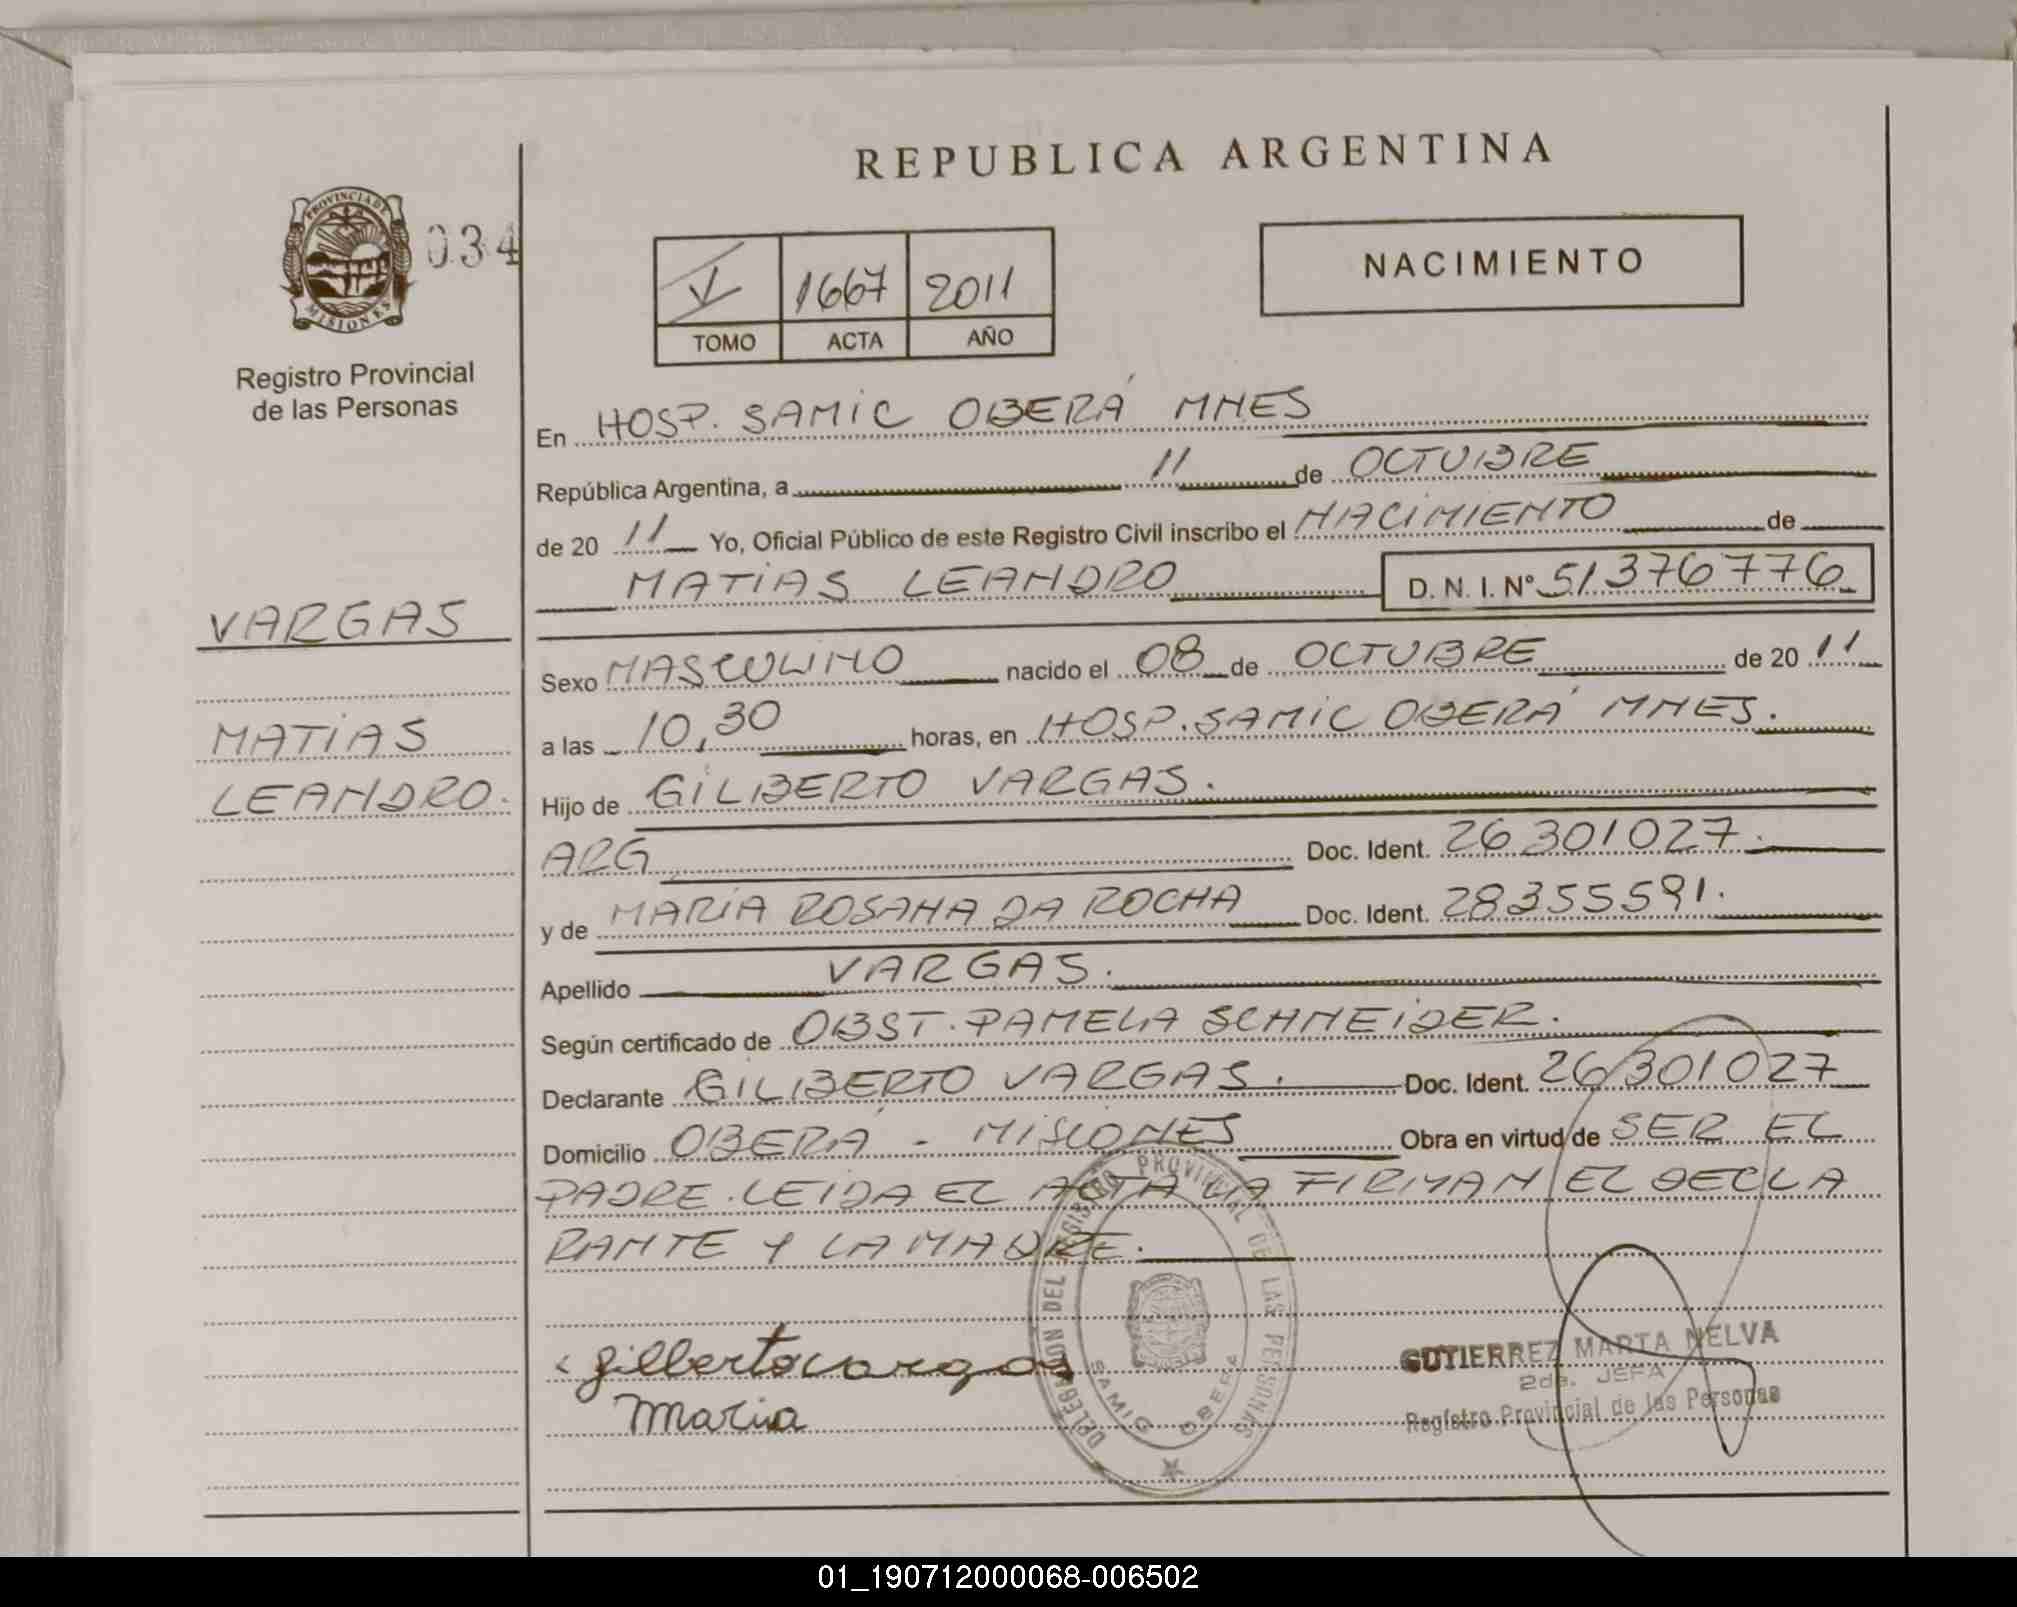 REPUBLICA ARGENTINA
PROVINCIA DE
MISIONES
034
Registro Provincial
de las Personas
V 1667 2011
TOMO ACTA AÑO
NACIMIENTO
En HOSP. SAMIC OBERÁ MNES
República Argentina, a 11 de OCTUBRE
de 20 11 Yo, Oficial Público de este Registro Civil inscribo el NACIMIENTO de
MATIAS LEANDRO D. N. I. Nº 51376776
VARGAS
MATIAS
LEANDRO.
Sexo MASCULINO nacido el 08 de OCTUBRE de 20 11
a las 10,30 horas, en HOSP. SAMIC OBERÁ MNES.
Hijo de GILBERTO VARGAS.
ARG Doc. Ident. 26301027.
y de MARIA ROSANA DA ROCHA Doc. Ident. 28355591.
Apellido VARGAS.
Según certificado de OBST. PAMELA SCHNEIDER.
Declarante GILBERTO VARGAS. Doc. Ident. 26301027
Domicilio OBERÁ - MISIONES Obra en virtud de SER EL
PADRE. LEIDA EL ACTA LA FIRMAN EL DECLA
RANTE Y LA MADRE.
gilberto vargas
maria
DELEGACION DEL REGISTRO PROVINCIAL DE LAS PERSONAS
SAMIC OBERA
GUTIERREZ MARTA NELVA
2da. JEFA
Registro Provincial de las Personas
01_190712000068-006502